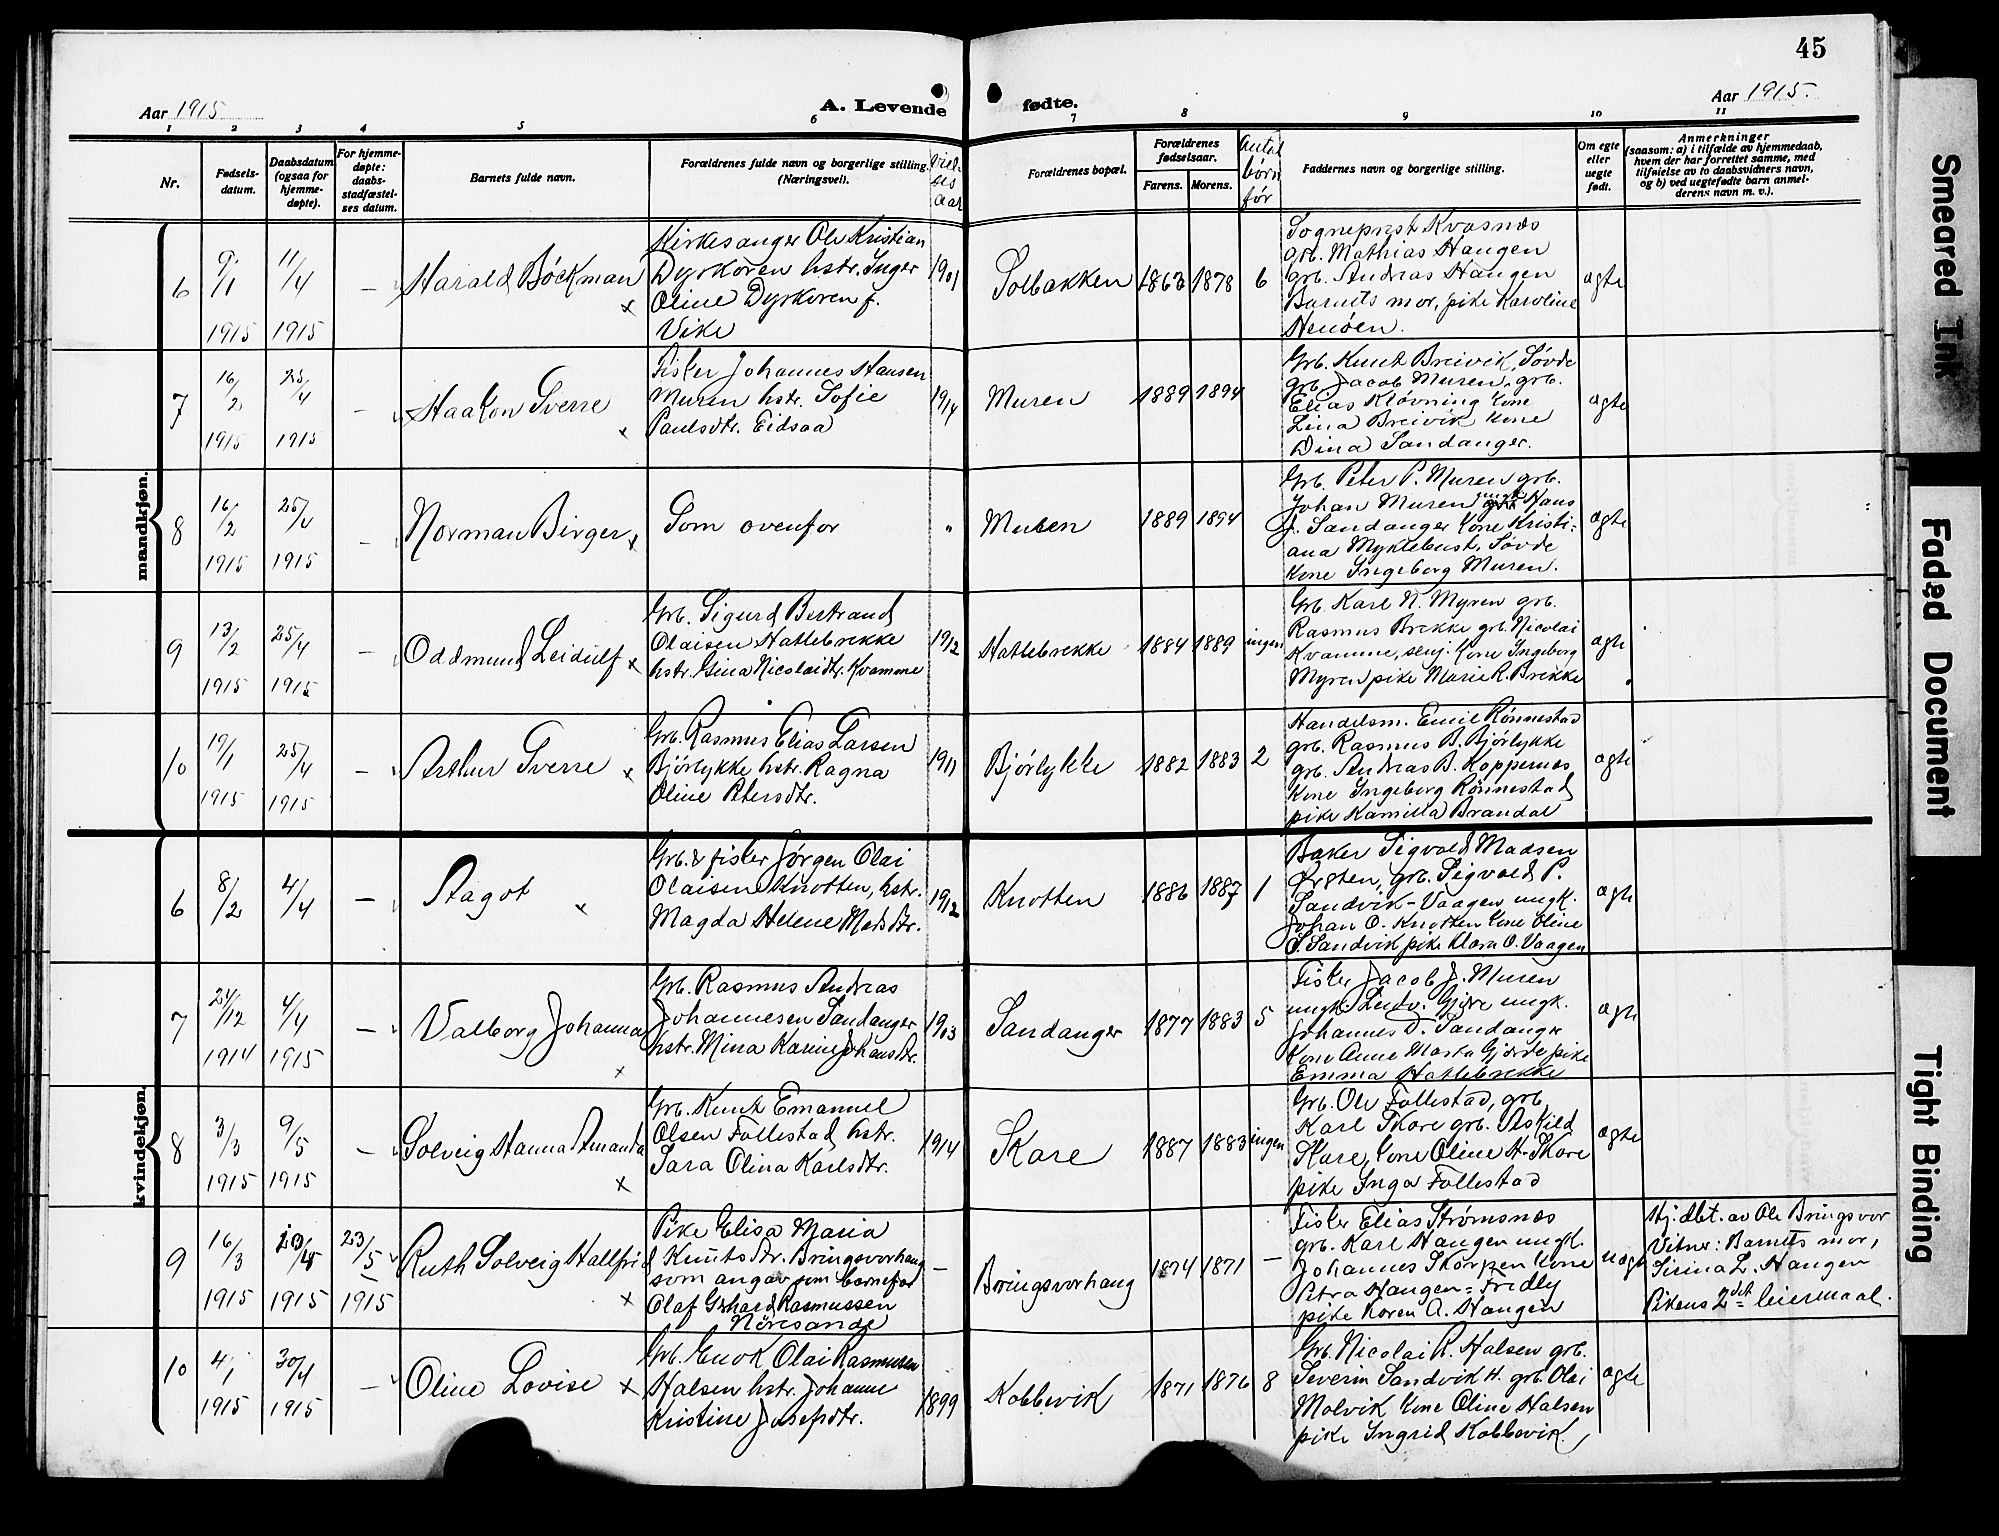 45
Aar 1915
A. Levende
fødte.
Aar 1915.
1 2 3 4 5 6 7 8 9 10 11
Nr.
Fødsels-
datum.
Daabsdatum
(ogsaa for
hjemme-
døpte).
For hjemme-
døpte:
daabs-
stadfæstel-
ses datum.
Barnets fulde navn.
Forældrenes fulde navn og borgerlige stilling.
(Næringsvei).
Viel-
ses
aar
Forældrenes bopæl.
Forældrenes
fødselsaar.
Farens. Morens.
Antal
børn
før
Faddernes navn og borgerlige stilling.
Om egte
eller
uegte
født.
Anmerkninger
(saasom: a) i tilfælde av hjemmedaab,
hvem der har forrettet samme, med
tilføielse av to daabsvidners navn,
og b) ved uegtefødte barn anmel-
derens navn m. v.).
mandkjøn.
6
9/1
1915
11/4
1915
—
Harald Böckman
x
Kirkesanger Ole Kristian
Dyrkoren hstr. Inger
Oline Dyrkoren f.
Vike
1901
Solbakken
1863 1878 6
Sogneprest Kvasnes
grb. Mathias Haugen
grb. Andreas Haugen
Barnets mor, pike Karoline
Henöen.
ægte
7
16/2
1915
25/4
1915
—
Haakon Sverre
x
Fisker Johannes Hansen
Muren hstr. Sofie
Paulsdtr. Eidsaa
1914
Muren
1889 1894
Grb. Knut Breivik, Sövde
grb. Jacob Muren, grb.
Elias Klövning kone
Lina Breivik kone
Dina Sandanger.
ægte
8
16/2
1915
25/4
1915
—
Norman Birger x
Som ovenfor
"
Muren
1889 1894
Grb. Peter P. Muren grb.
Johan Muren ungk. Hans
J. Sandanger kone Kristi-
ana Myklebust, Sövde
kone Ingeborg Muren.
ægte
9
13/2
1915
25/4
1915
—
Oddmund Leidulf x
Grb. Sigurd Bertrand
Olaisen Hattebrekke
hstr. Gina Nicolaidtr. Kvamme
1912
Hattebrekke
1884 1889 ingen
Grb. Karl N. Myren grb.
Rasmus Brekke grb. Nicolai
Kvamme, senj. kone Ingeborg
Myren pike Marie R. Brekke
ægte
10
19/1
1915
25/4
1915
—
Arthur Sverre x
Grb. Rasmus Elias Larsen
Bjørlykke hstr. Ragna
Oline Petersdtr.
1911
Bjørlykke
1882 1883 2
Handelsm. Emil Rönnestad
grb. Rasmus B. Bjørlykke
grb. Andreas B. Koppernes
kone Ingeborg Rönnestad
pike Kamilla Brandal
ægte
kvindekjøn.
6
8/2
4/4
—
Dagot x
Grb. & fisker Jørgen Olai
Olaisen Knotten, hstr.
Magda Helene Madsdtr.
1912
Knotten
1886 1887 1
Baker Sigvald Madsen
Ørsten, grb. Sigvald P.
Sandvik-Vaagen ungk.
Johan O. Knotten kone Oline
S. Sandvik pike Klara O. Vaagen
ægte
7
24/12
1914
4/4
1915
—
Valborg Johanna
x
Grb. Rasmus Andreas
Johannesen Sandanger
hstr. Mina Karine Johansdtr.
1903
Sandanger
1877 1883 5
Fisker Jacob J. Muren
ungk. Ludv. Gjöre ungk.
Johannes D. Sandanger
kone Anne Marta Gjerde pike
Emma Hattebrekke
ægte
8
3/3
1915
9/5
1915
—
Solveig Hanna Amanda
x
Grb. Knut Emanuel
Olsen Follestad hstr.
Sara Olina Karlsdtr.
1914
Skare
1887 1883 ingen
Grb. Ole Follestad, grb.
Karl Skare grb. Askild
Skare, kone Oline H. Skare
pike Inga Follestad
ægte
9
16/3
1915
1915
23/5
1915
Ruth Solveig Hallfrid
x
Pike Elisa Maria
Knutsdtr. Bringsvorhaug
som angav som barnefar
Olaf Gerhard Rasmussen
Nöresande
—
Bringsvorhaug
1874 1871 —
Fisker Elias Strømsnes
grb. Karl Haugen ungk.
Johannes Skorpen kone
Petra Haugen = Fridly
pike Karen A. Haugen
uægte
Hj. dbt. av Ole Bringsvor
Vitner: Barnets mor,
Sirina L. Haugen
Pikens 2det leiermaal.
10
4/1
1915
30/4
1915
—
Oline Lovise x
Grb. Enok Olai Rasmusen
Halsen hstr. Johanne
Kristine Josefsdtr.
1899
Kobbevik
1871 1876 8
Grb. Nicolai R. Halsen grb.
Severin Sandvik H. grb. Olai
Molvik kone Oline Halsen
pike Ingrid Kobbevik
ægte
Smeared Ink
Faded Document
Tight Binding